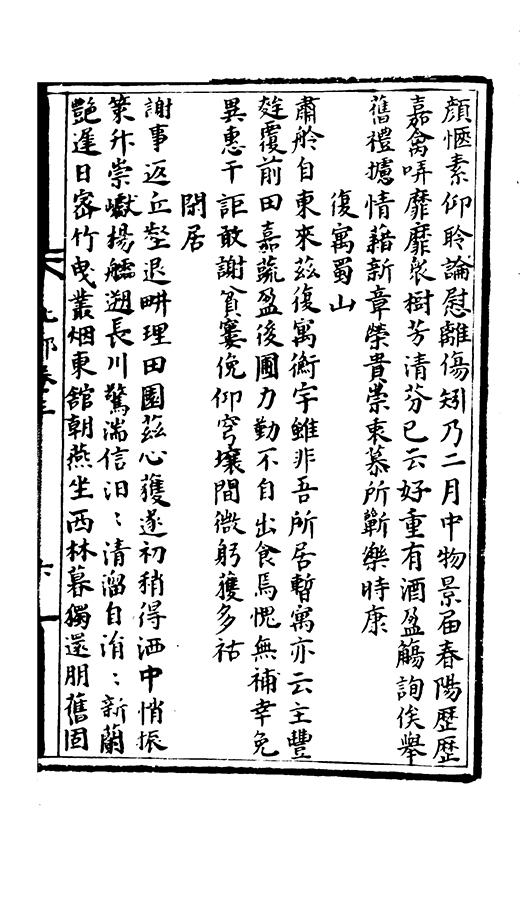 顔愜素仰聆論慰離傷矧乃二月中物景届春陽歷歷
嘉禽哢靡靡衆樹芳清芬已云好重有酒盈觴詢俟舉
舊禮攄情藉新章榮貴崇東慕所蘄樂時康
復寓蜀山
肅舲自東來茲復寓衡宇雖非吾所居暫寓亦云主豐
草覆前田嘉蔬盈後圃力勤不自出食焉愧無補幸免
異惠干詎敢謝貧窶俛仰穹壤間微躬獲多祜
閑居
謝事返丘壑退畊理田園茲心獲遂初稍得洒中悁振
策升崇巘揚艫遡長川驚湍信汩〻清溜自涓〻新蘭
艷遲日密竹曳叢烟東舘朝燕坐西林暮獨還朋舊固
卷三
六